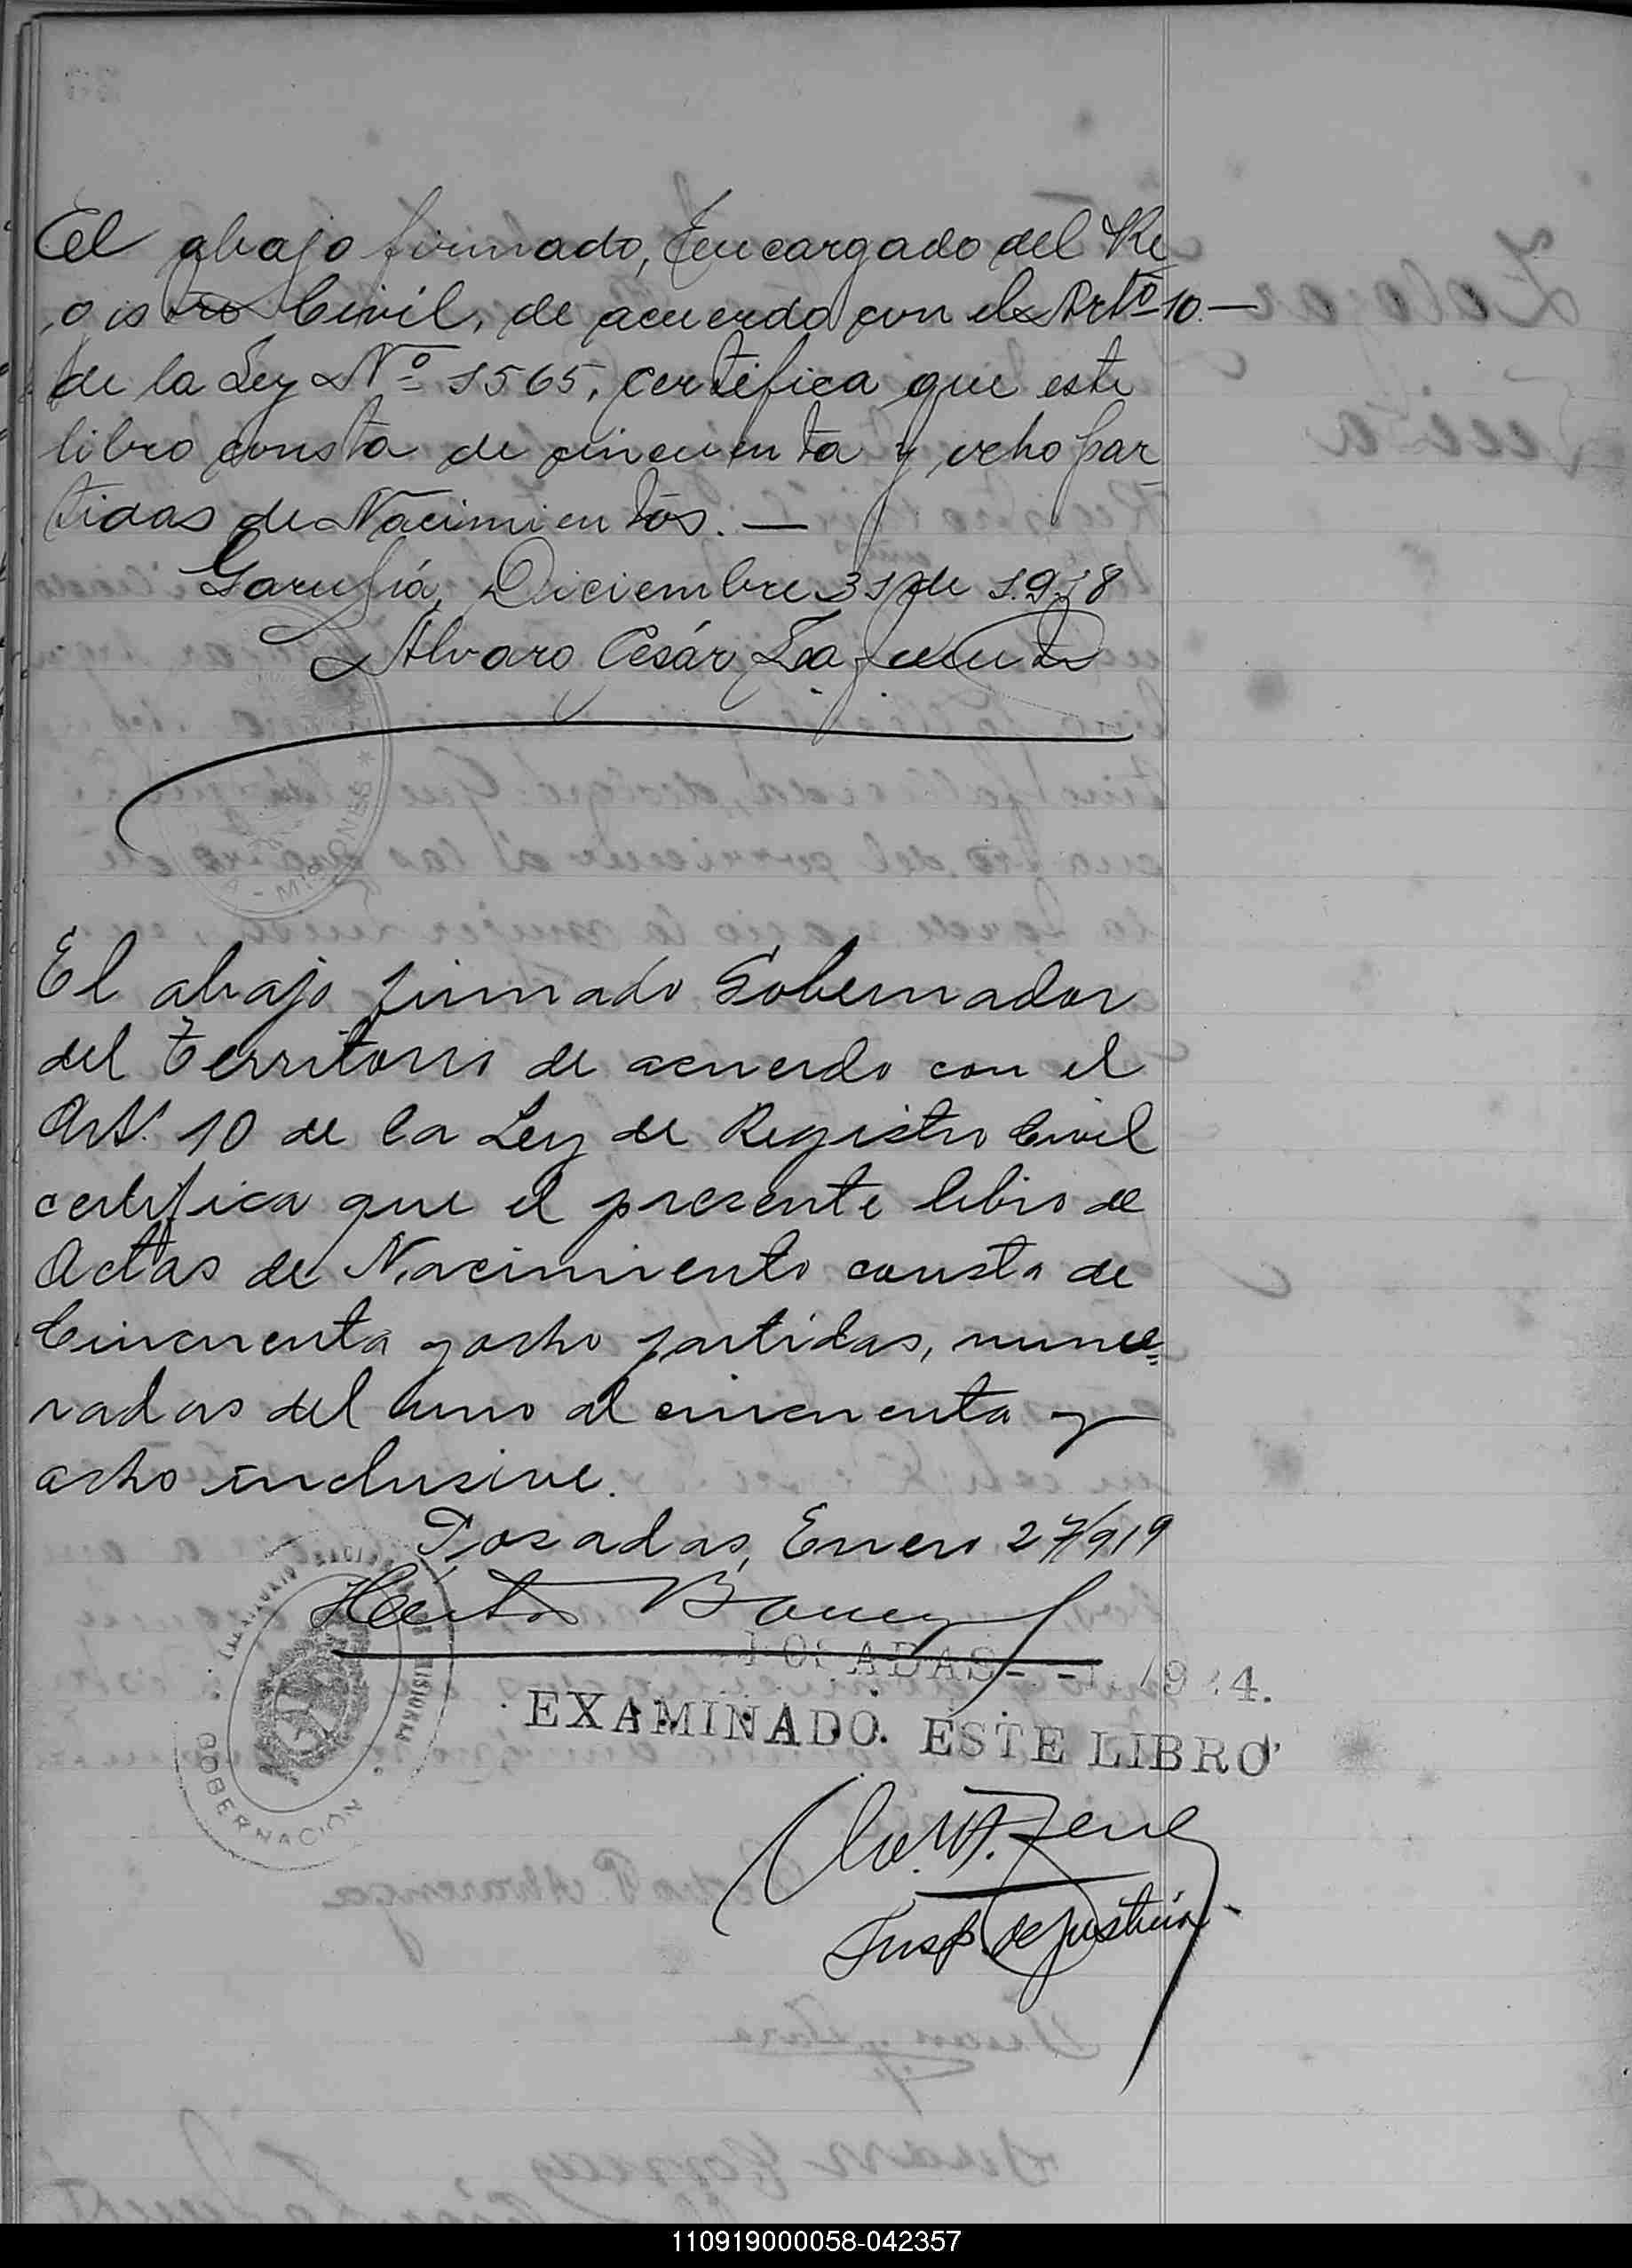 El abajo firmado, Encargado del Re
gistro Civil, de acuerdo con el Artº 10.—
de la Ley Nº 1565, certifica que este
libro consta de cincuenta y ocho par
tidas de Nacimientos.—
Garupá, Diciembre 31 de 1918
Alvaro César Lafuente
MISIONES
El abajo firmado Gobernador
del Territorio de acuerdo con el
Art. 10 de la Ley de Registro Civil
certifica que el presente libro de
Actas de Nacimiento consta de
Cincuenta y ocho partidas, nume=
radas del uno al cincuenta y
ocho inclusive.
Posadas, Enero 27/919
Héctor
GOBERNACIÓN
POSADAS
EXAMINADO ESTE LIBRO
Insp. de Justicia
110919000058-042357